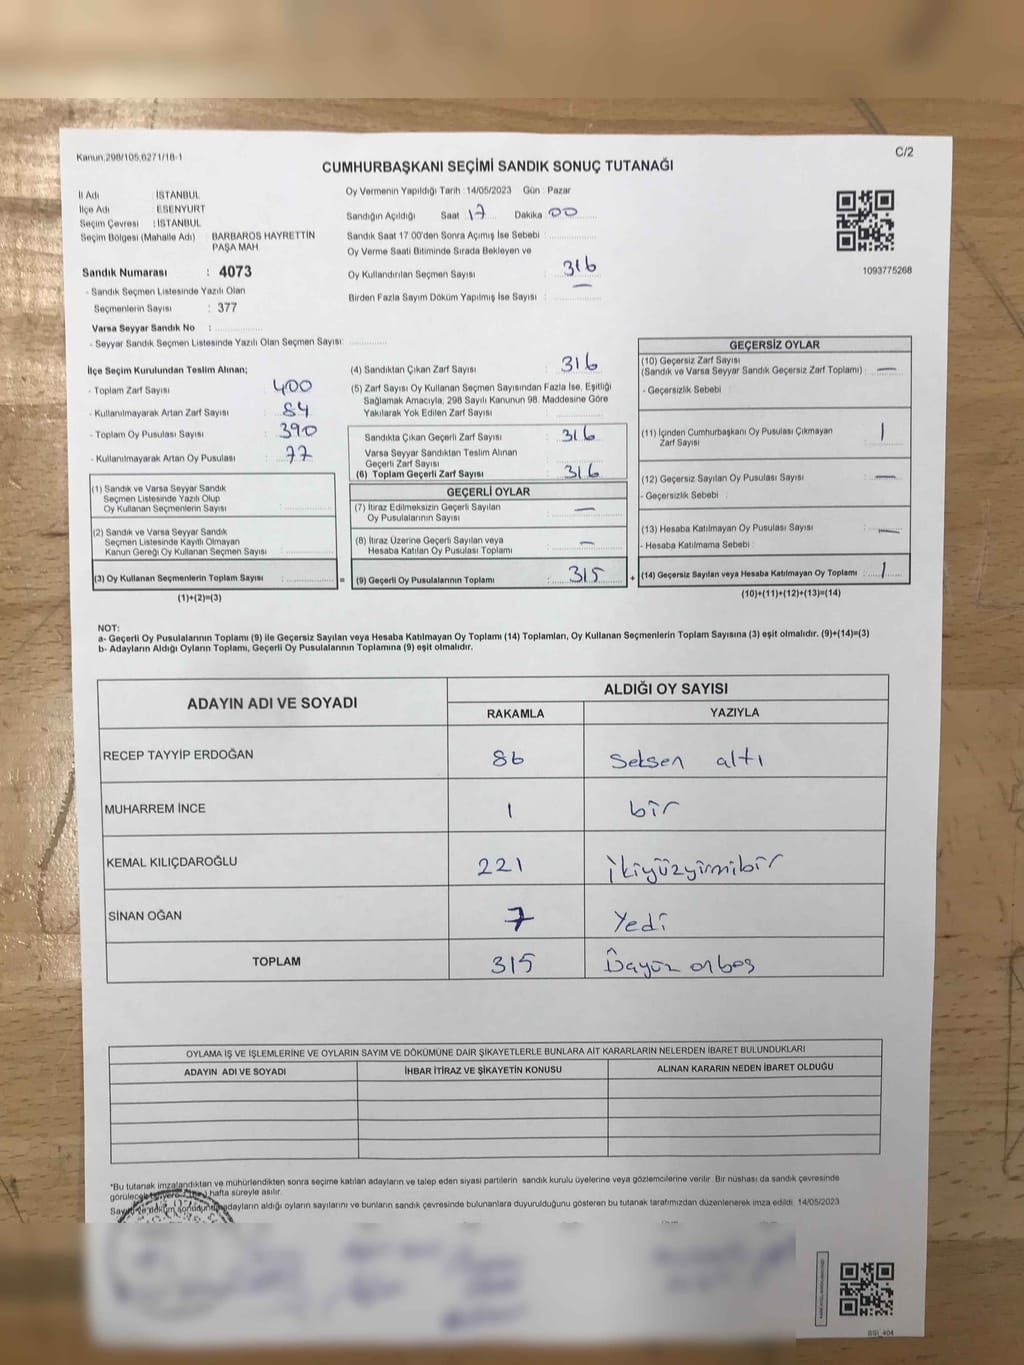 Kanun.298/105,6271/18-1
C/2
CUMHURBAŞKANI SEÇİMİ SANDIK SONUÇ TUTANAĞI
İl Adı : İSTANBUL
İlçe Adı : ESENYURT
Seçim Çevresi : İSTANBUL
Seçim Bölgesi (Mahalle Adı) BARBAROS HAYRETTİN
PAŞA MAH.
Sandık Numarası : 4073
- Sandık Seçmen Listesinde Yazılı Olan
Seçmenlerin Sayısı : 377
Varsa Seyyar Sandık No :
- Seyyar Sandık Seçmen Listesinde Yazılı Olan Seçmen Sayısı:
Oy Vermenin Yapıldığı Tarih :14/05/2023 Gün : Pazar
Sandığın Açıldığı Saat 17 Dakika 00
Sandık Saat 17:00'den Sonra Açımış İse Sebebi :
Oy Verme Saati Bitiminde Sırada Bekleyen ve
Oy Kullandırılan Seçmen Sayısı : 316
Birden Fazla Sayım Döküm Yapılmış İse Sayısı :
1093775268
İlçe Seçim Kurulundan Teslim Alınan;
- Toplam Zarf Sayısı : 400
- Kullanılmayarak Artan Zarf Sayısı : 84
- Toplam Oy Pusulası Sayısı : 390
- Kullanılmayarak Artan Oy Pusulası : 77
(1) Sandık ve Varsa Seyyar Sandık
Seçmen Listesinde Yazılı Olup
Oy Kullanan Seçmenlerin Sayısı :
(2) Sandık ve Varsa Seyyar Sandık
Seçmen Listesinde Kayıtlı Olmayan
Kanun Gereği Oy Kullanan Seçmen Sayısı :
(3) Oy Kullanan Seçmenlerin Toplam Sayısı : =
(1)+(2)=(3)
(4) Sandıktan Çıkan Zarf Sayısı : 316
(5) Zarf Sayısı Oy Kullanan Seçmen Sayısından Fazla İse, Eşitliği
Sağlamak Amacıyla, 298 Sayılı Kanunun 98. Maddesine Göre
Yakılarak Yok Edilen Zarf Sayısı :
Sandıkta Çıkan Geçerli Zarf Sayısı : 316
Varsa Seyyar Sandıktan Teslim Alınan
Geçerli Zarf Sayısı :
(6) Toplam Geçerli Zarf Sayısı : 316
GEÇERLİ OYLAR
(7) İtiraz Edilmeksizin Geçerli Sayılan
Oy Pusulalarının Sayısı : —
(8) İtiraz Üzerine Geçerli Sayılan veya
Hesaba Katılan Oy Pusulası Toplamı : —
(9) Geçerli Oy Pusulalarının Toplamı : 315 +
GEÇERSİZ OYLAR
(10) Geçersiz Zarf Sayısı
(Sandık ve Varsa Seyyar Sandık Geçersiz Zarf Toplamı) : —
- Geçersizlik Sebebi :
(11) İçinden Cumhurbaşkanı Oy Pusulası Çıkmayan
Zarf Sayısı : 1
(12) Geçersiz Sayılan Oy Pusulası Sayısı : —
- Geçersizlik Sebebi :
(13) Hesaba Katılmayan Oy Pusulası Sayısı : —
- Hesaba Katılmama Sebebi :
(14) Geçersiz Sayılan veya Hesaba Katılmayan Oy Toplamı : 1
(10)+(11)+(12)+(13)=(14)
NOT:
a- Geçerli Oy Pusulalarının Toplamı (9) ile Geçersiz Sayılan veya Hesaba Katılmayan Oy Toplamı (14) Toplamları, Oy Kullanan Seçmenlerin Toplam Sayısına (3) eşit olmalıdır. (9)+(14)=(3)
b- Adayların Aldığı Oyların Toplamı, Geçerli Oy Pusulalarının Toplamına (9) eşit olmalıdır.
ADAYIN ADI VE SOYADI
ALDIĞI OY SAYISI
RAKAMLA YAZIYLA
RECEP TAYYİP ERDOĞAN 86 Seksen altı
MUHARREM İNCE 1 bir
KEMAL KILIÇDAROĞLU 221 ikiyüzyirmibir
SİNAN OĞAN 7 Yedi
TOPLAM 315 Üçyüz onbeş
OYLAMA İŞ VE İŞLEMLERİNE VE OYLARIN SAYIM VE DÖKÜMÜNE DAİR ŞİKAYETLERLE BUNLARA AİT KARARLARIN NELERDEN İBARET BULUNDUKLARI
ADAYIN ADI VE SOYADI İHBAR İTİRAZ VE ŞİKAYETİN KONUSU ALINAN KARARIN NEDEN İBARET OLDUĞU
*Bu tutanak imzalandıktan ve mühürlendikten sonra seçime katılan adayların ve talep eden siyasi partilerin sandık kurulu üyelerine veya gözlemcilerine verilir. Bir nüshası da sandık çevresinde
hafta süreyle asılır.
adayların aldığı oyların sayılarını ve bunların sandık çevresinde bulunanlara duyurulduğunu gösteren bu tutanak tarafımızdan düzenlenerek imza edildi. 14/05/2023
BSI_404